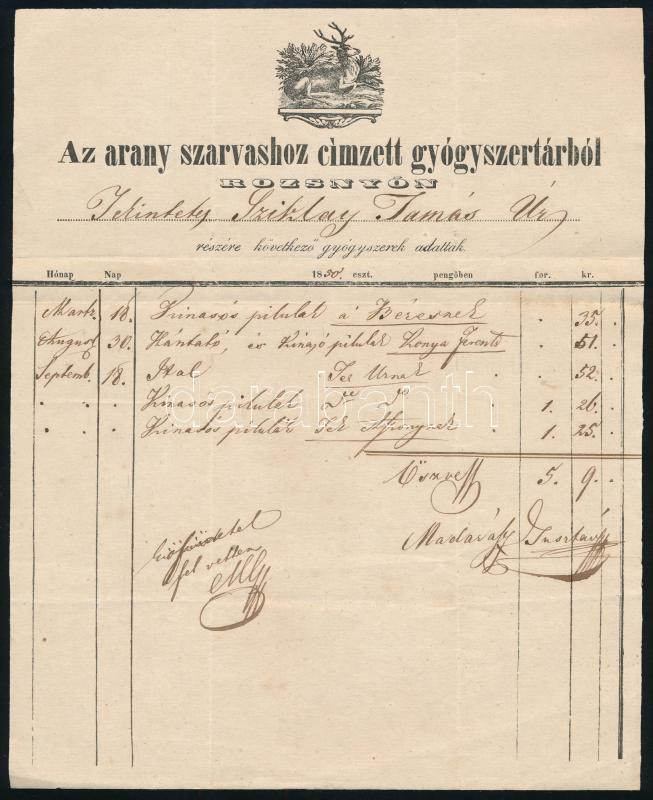 Az arany szarvashoz cìmzett gyógyszertárból
ROZSNYÓN
Tekintetes Sziklay Tamás Úr
részére következő gyógyszerek adattak.
Hónap Nap 1850. eszt. pengőben for. kr.
Martz. 18. Kinasós pilulák a Béresnek . 35. .
August 30. Hántató, és Kinazó pilulák Konya Ferentz . 51. .
Septemb. 18. Ital Tek Urnak . . 52. .
. . Kinasós pilulák 1. 26. .
. . Kinasós pilulák Tek Aszonynak . 1. 25. .
Öszvess 5. 9. .
fel vettem
Madarász Gusztáv
darabanth